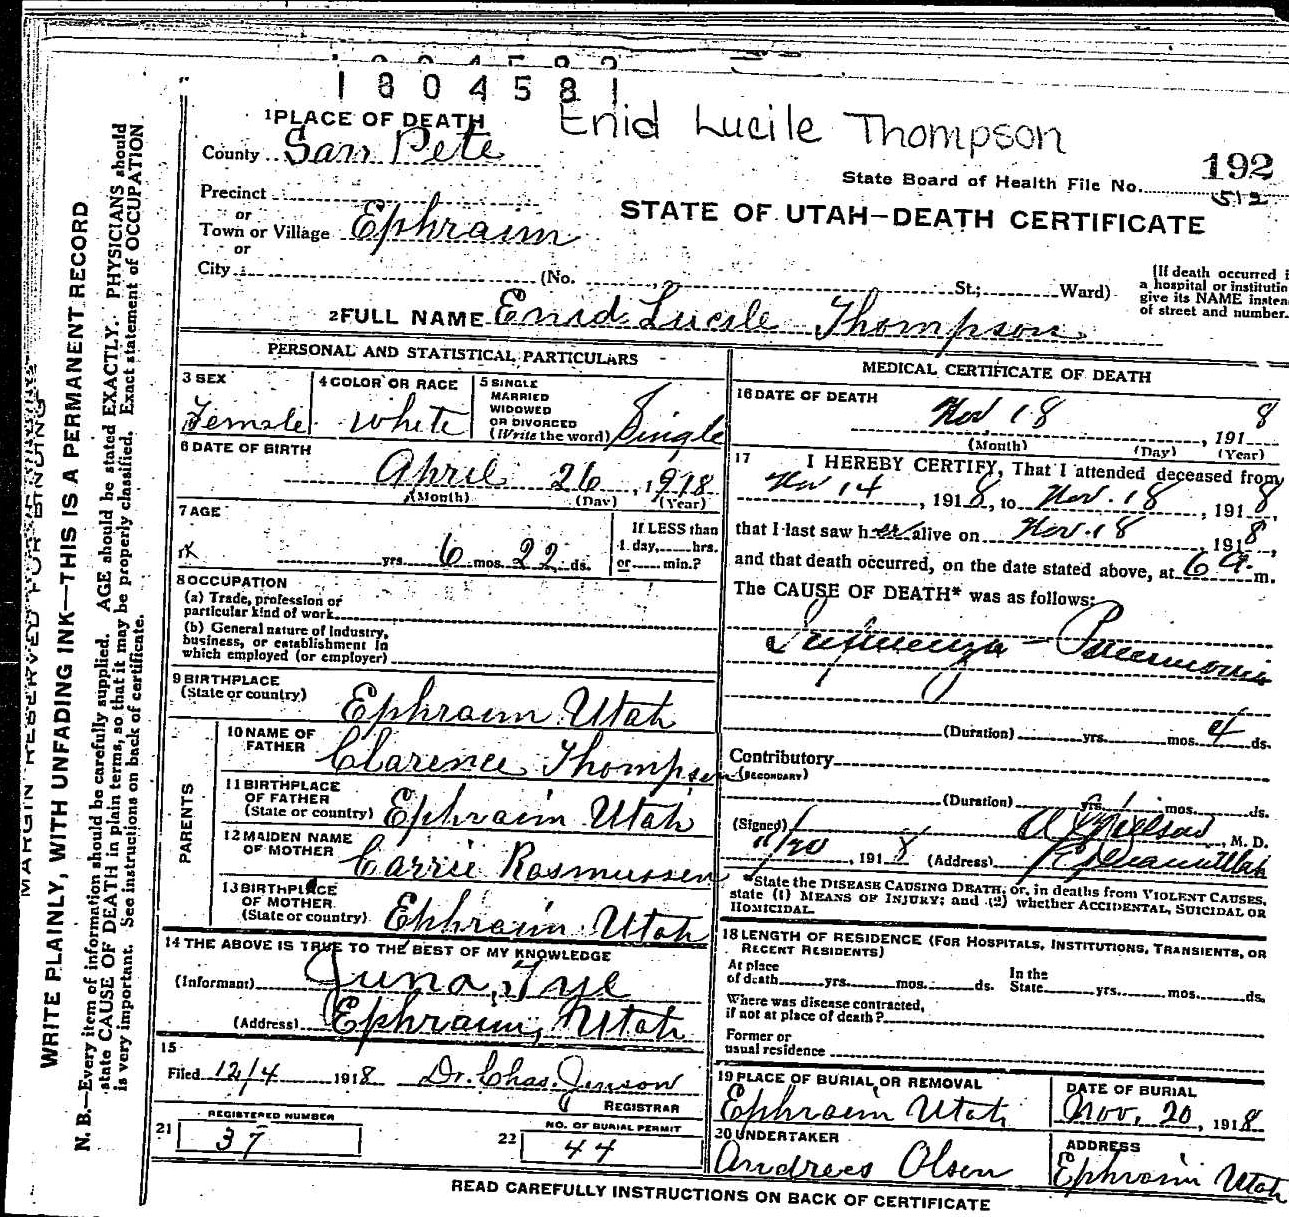 1804581
1 PLACE OF DEATH
Enid Lucile Thompson
County San Pete
192
State Board of Health File No.
512
Precinct
or
Town or Village Ephraim
STATE OF UTAH—DEATH CERTIFICATE
or
City (No. St.; Ward)
(If death occurred i
a hospital or institutio
give its NAME instea
of street and number.
2 FULL NAME Enid Lucile Thompson
PERSONAL AND STATISTICAL PARTICULARS
3 SEX
Female
4 COLOR OR RACE
White
5 SINGLE
MARRIED
WIDOWED
OR DIVORCED
(Write the word) Single
6 DATE OF BIRTH
April 26, 1918
(Month) (Day) (Year)
7 AGE
yrs. 6 mos. 22 ds.
If LESS than
1 day, hrs.
or min.?
8 OCCUPATION
(a) Trade, profession or
particular kind of work
(b) General nature of Industry,
business, or establishment in
which employed (or employer)
9 BIRTHPLACE
(State or country)
Ephraim Utah
PARENTS
10 NAME OF
FATHER
Clarence Thompson
11 BIRTHPLACE
OF FATHER
(State or country) Ephraim Utah
12 MAIDEN NAME
OF MOTHER
Carrie Rasmussen
13 BIRTHPLACE
OF MOTHER
(State or country) Ephraim Utah
14 THE ABOVE IS TRUE TO THE BEST OF MY KNOWLEDGE
(Informant) Juna Tye
(Address) Ephraim, Utah
15
Filed 12/4 1918 Dr. Chas. Jenson
REGISTRAR
21 REGISTERED NUMBER
37
22 NO. OF BURIAL PERMIT
44
MEDICAL CERTIFICATE OF DEATH
16 DATE OF DEATH
Nov 18, 1918
(Month) (Day) (Year)
17 I HEREBY CERTIFY, That I attended deceased from
Nov 14, 1918, to Nov. 18, 1918,
that I last saw her alive on Nov. 18 1918,
and that death occurred, on the date stated above, at 6 a. m.
The CAUSE OF DEATH* was as follows:
Influenza - Pneumonia
(Duration) yrs. mos. 4 ds.
Contributory
(SECONDARY)
(Duration) yrs. mos. ds.
(Signed) Nielson, M. D.
11/20, 1918 (Address) Ephraim Utah
*State the DISEASE CAUSING DEATH, or, in deaths from VIOLENT CAUSES,
state (1) MEANS OF INJURY; and (2) whether ACCIDENTAL, SUICIDAL OR
HOMICIDAL.
18 LENGTH OF RESIDENCE (FOR HOSPITALS, INSTITUTIONS, TRANSIENTS, OR
RECENT RESIDENTS)
At place
of death yrs. mos. ds.
In the
State yrs. mos. ds.
Where was disease contracted,
if not at place of death?
Former or
usual residence
19 PLACE OF BURIAL OR REMOVAL
Ephraim Utah
DATE OF BURIAL
Nov. 20, 1918
20 UNDERTAKER
Andrees Olsen
ADDRESS
Ephraim Utah
READ CAREFULLY INSTRUCTIONS ON BACK OF CERTIFICATE
MARGIN RESERVED FOR BINDING
WRITE PLAINLY, WITH UNFADING INK—THIS IS A PERMANENT RECORD
N. B.—Every item of information should be carefully supplied. AGE should be stated EXACTLY. PHYSICIANS should
state CAUSE OF DEATH in plain terms, so that it may be properly classified. Exact statement of OCCUPATION
is very important. See instructions on back of certificate.